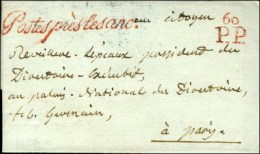 Postes près les arm. au citoyen
60
P.P.
Reveillere-Lépeaux president du
Directoire Exécutif,
au palais National du Directoire,
fb. Germain,
à paris